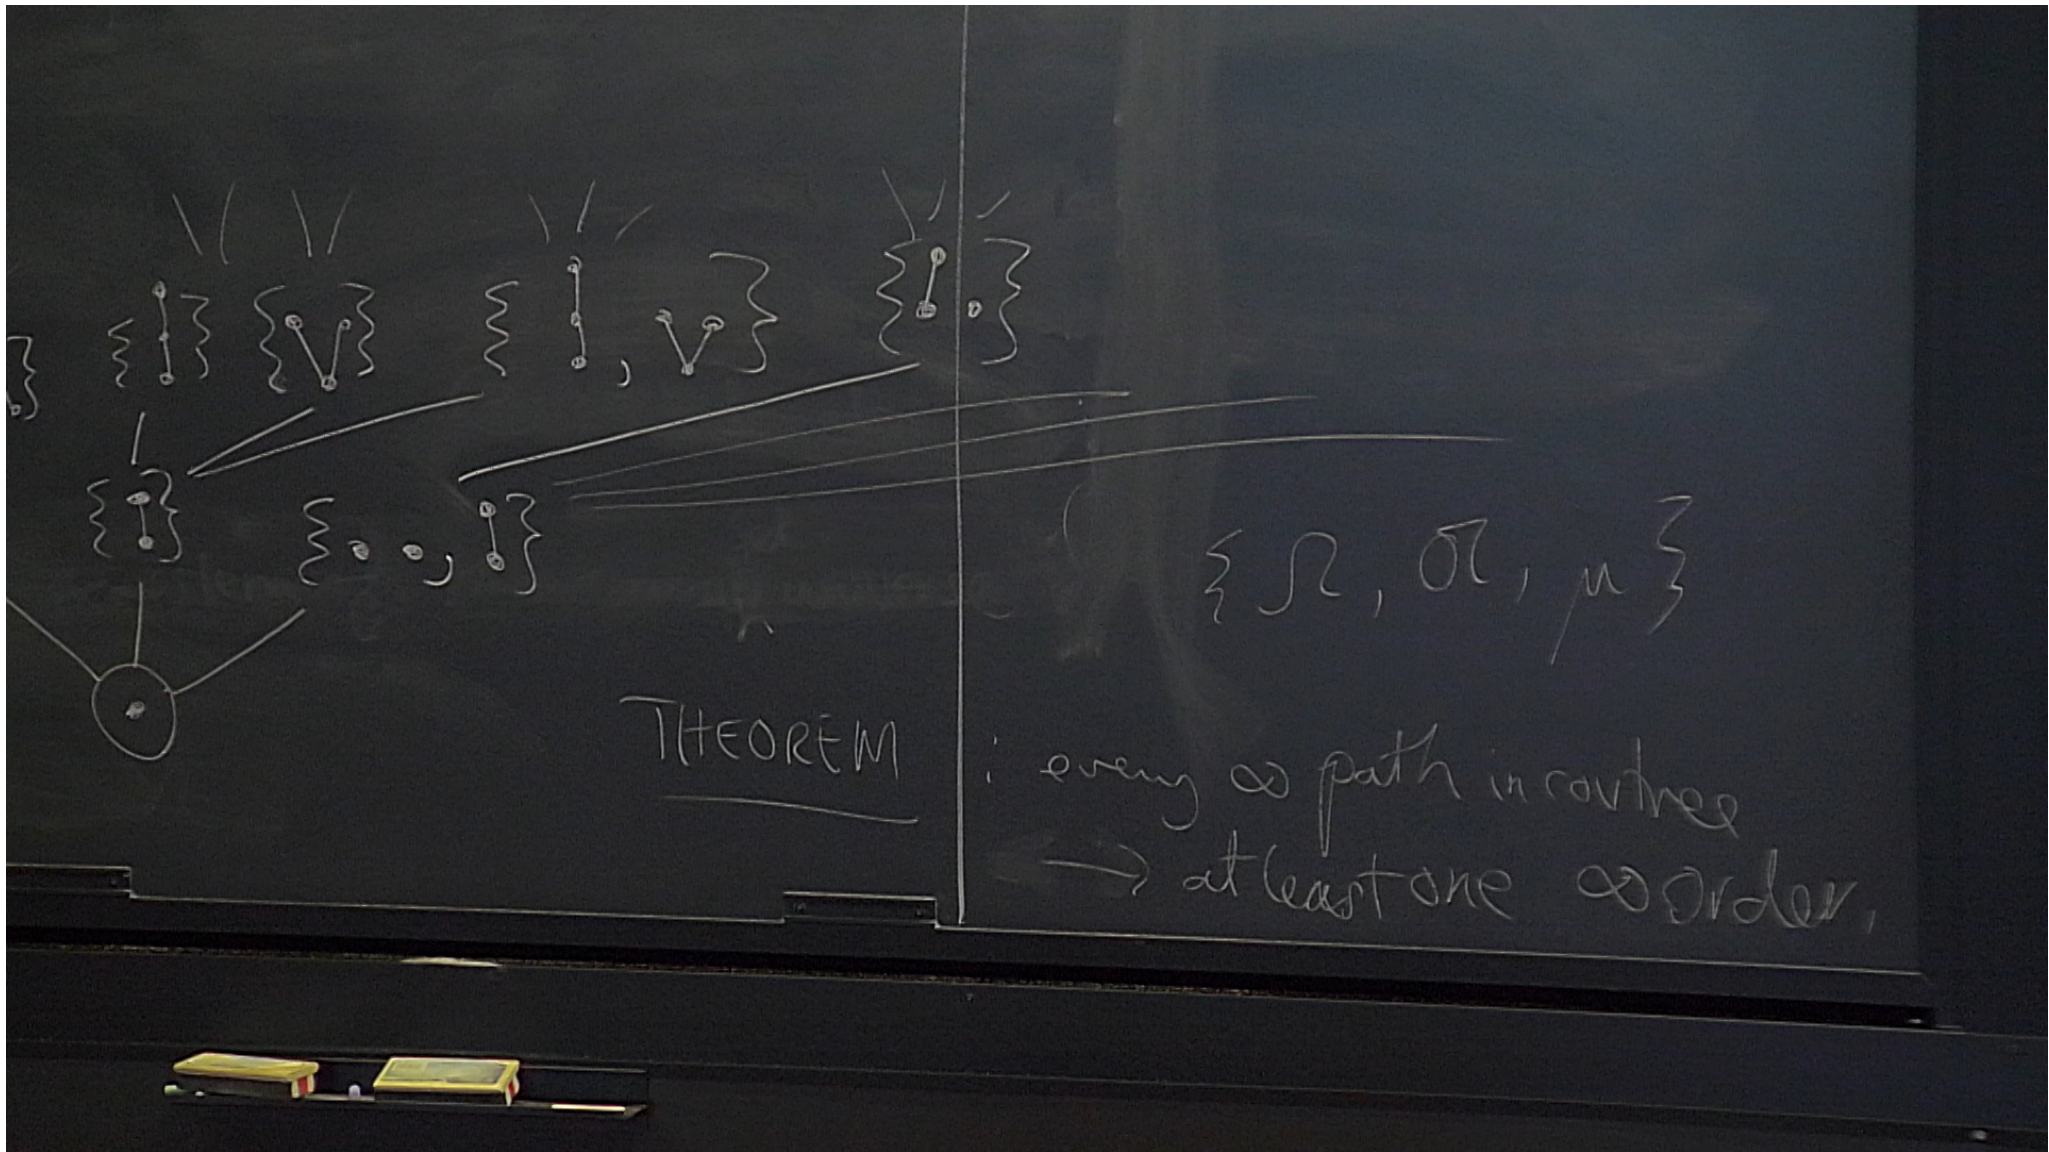 {Ω, σ, μ}
THEOREM : every ∞ path in covtree
→ at least one ∞ order.